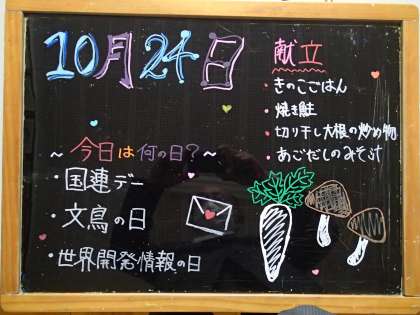 10月24日
献立
・きのこごはん
・焼き鮭
・切り干し大根の炒め物
・あごだしのみそ汁
～今日は何の日？～
・国連デー
・文鳥の日
・世界開発情報の日